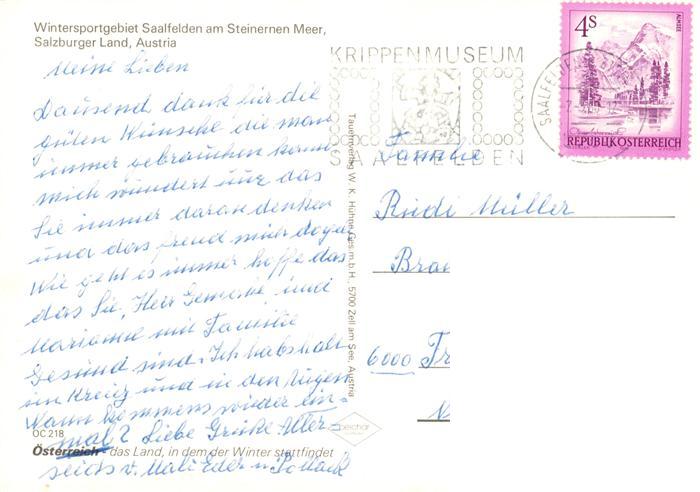 Wintersportgebiet Saalfelden am Steinernen Meer,
Salzburger Land, Austria
Meine Lieben
Dausend dank für die
guten Wünsche die man
immer gebrauchen kann
mich wundert nur das
Sie immer daran denken
und das freud mich
Wie geht es immer hoffe das
das Sie, Herr und
Marianne mit Familie
Gesund sind. Ich habs halt
im Kreuz und in den Augen
Wann kommens wieder ein-
mal? Liebe Grüße Aller-
seits v. Mali Eder u Pollack
OC 218
Österreich - das Land, in dem der Winter stattfindet
Tauernverlag W. K. Huhne Ges.m.b.H., 5700 Zell am See, Austria
KRIPPENMUSEUM
SAALFELDEN
4S
ALMSEE
REPUBLIK ÖSTERREICH
Familie
Rudi Müller
Brau
6000 Fr